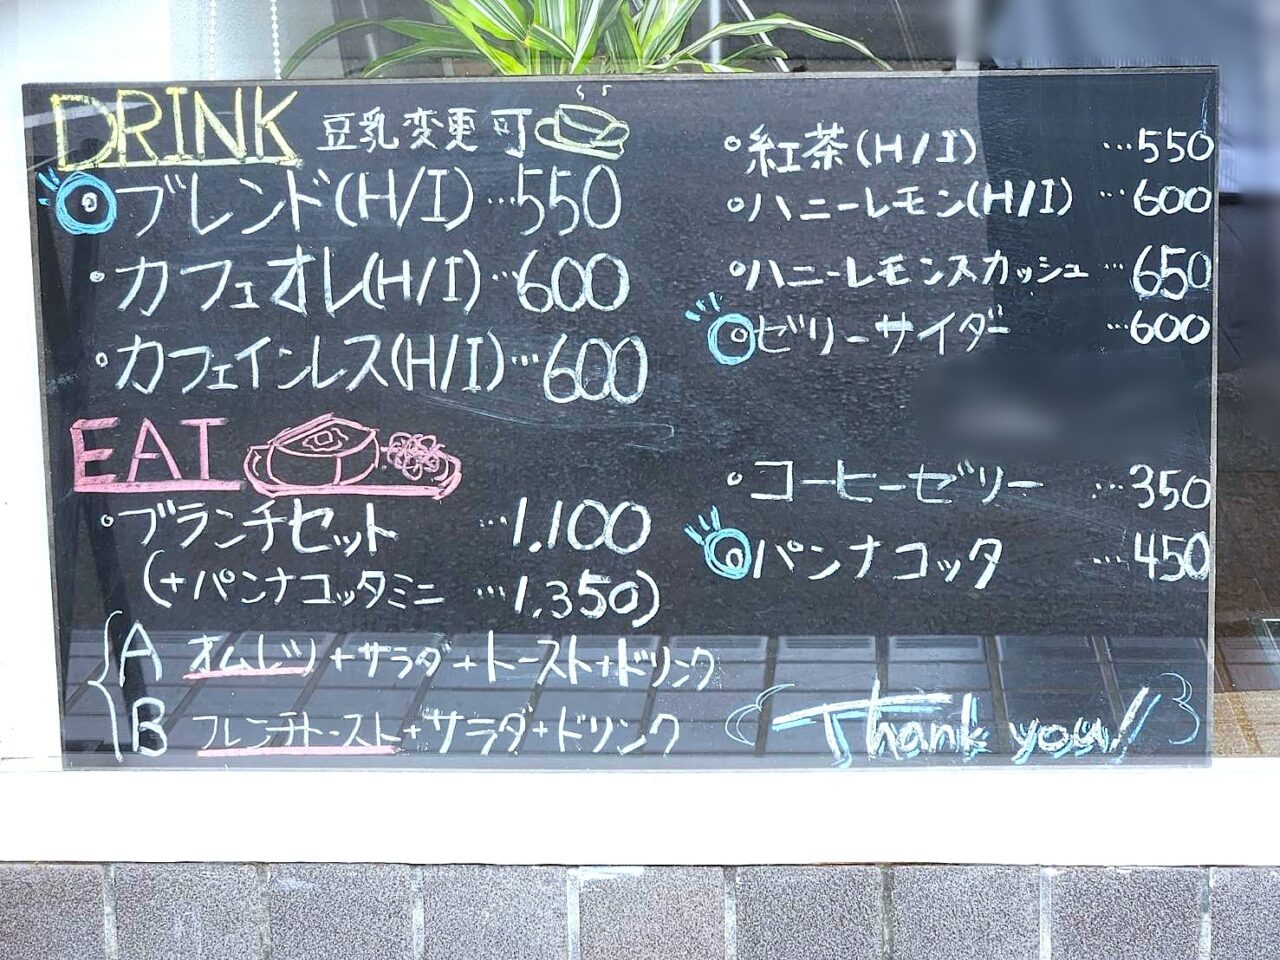 DRINK 豆乳変更可
◦ブレンド(H/I)…550
・カフェオレ(H/I)…600
・カフェインレス(H/I)…600
◦紅茶(H/I) …550
◦ハニーレモン(H/I) …600
◦ハニーレモンスカッシュ …650
◦ゼリーサイダー …600
EAT
◦ブランチセット …1.100
(+パンナコッタミニ …1.350)
A オムレツ+サラダ+トースト+ドリンク
B フレンチトースト+サラダ+ドリンク
◦コーヒーゼリー …350
◦パンナコッタ …450
Thank you!